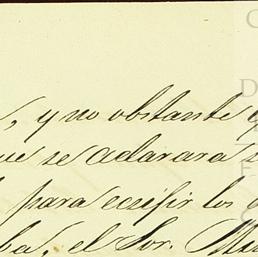 , y no obstante q
ue se aclarara s
para ecsifir los
ba, el Sor. Min